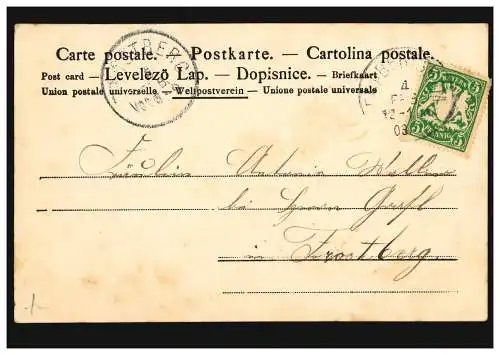 Carte postale. — Postkarte. — Cartolina postale.
Post card — Levelező Lap. — Dopisnice. — Briefkaart
Union postale universelle — Weltpostverein — Unione postale universale
TROSTBERG
5
5
PFENNIG
Fräulein Antonie
bei Herrn
in Trostberg.